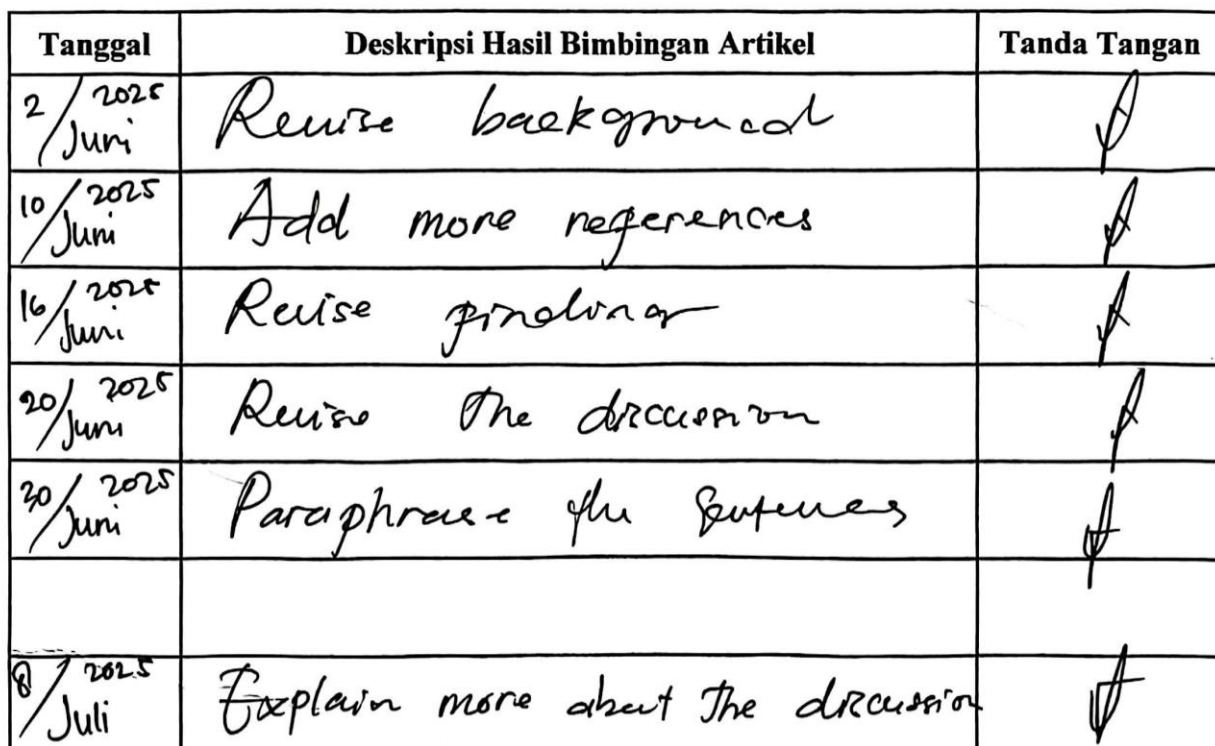 Tanggal Deskripsi Hasil Bimbingan Artikel Tanda Tangan
2/Juni 2025 Revise background
10/Juni 2025 Add more references
16/Juni 2025 Revise findings
20/Juni 2025 Revise the discussion
30/Juni 2025 Paraphrase the sentences
8/Juli 2025 Explain more about the discussion